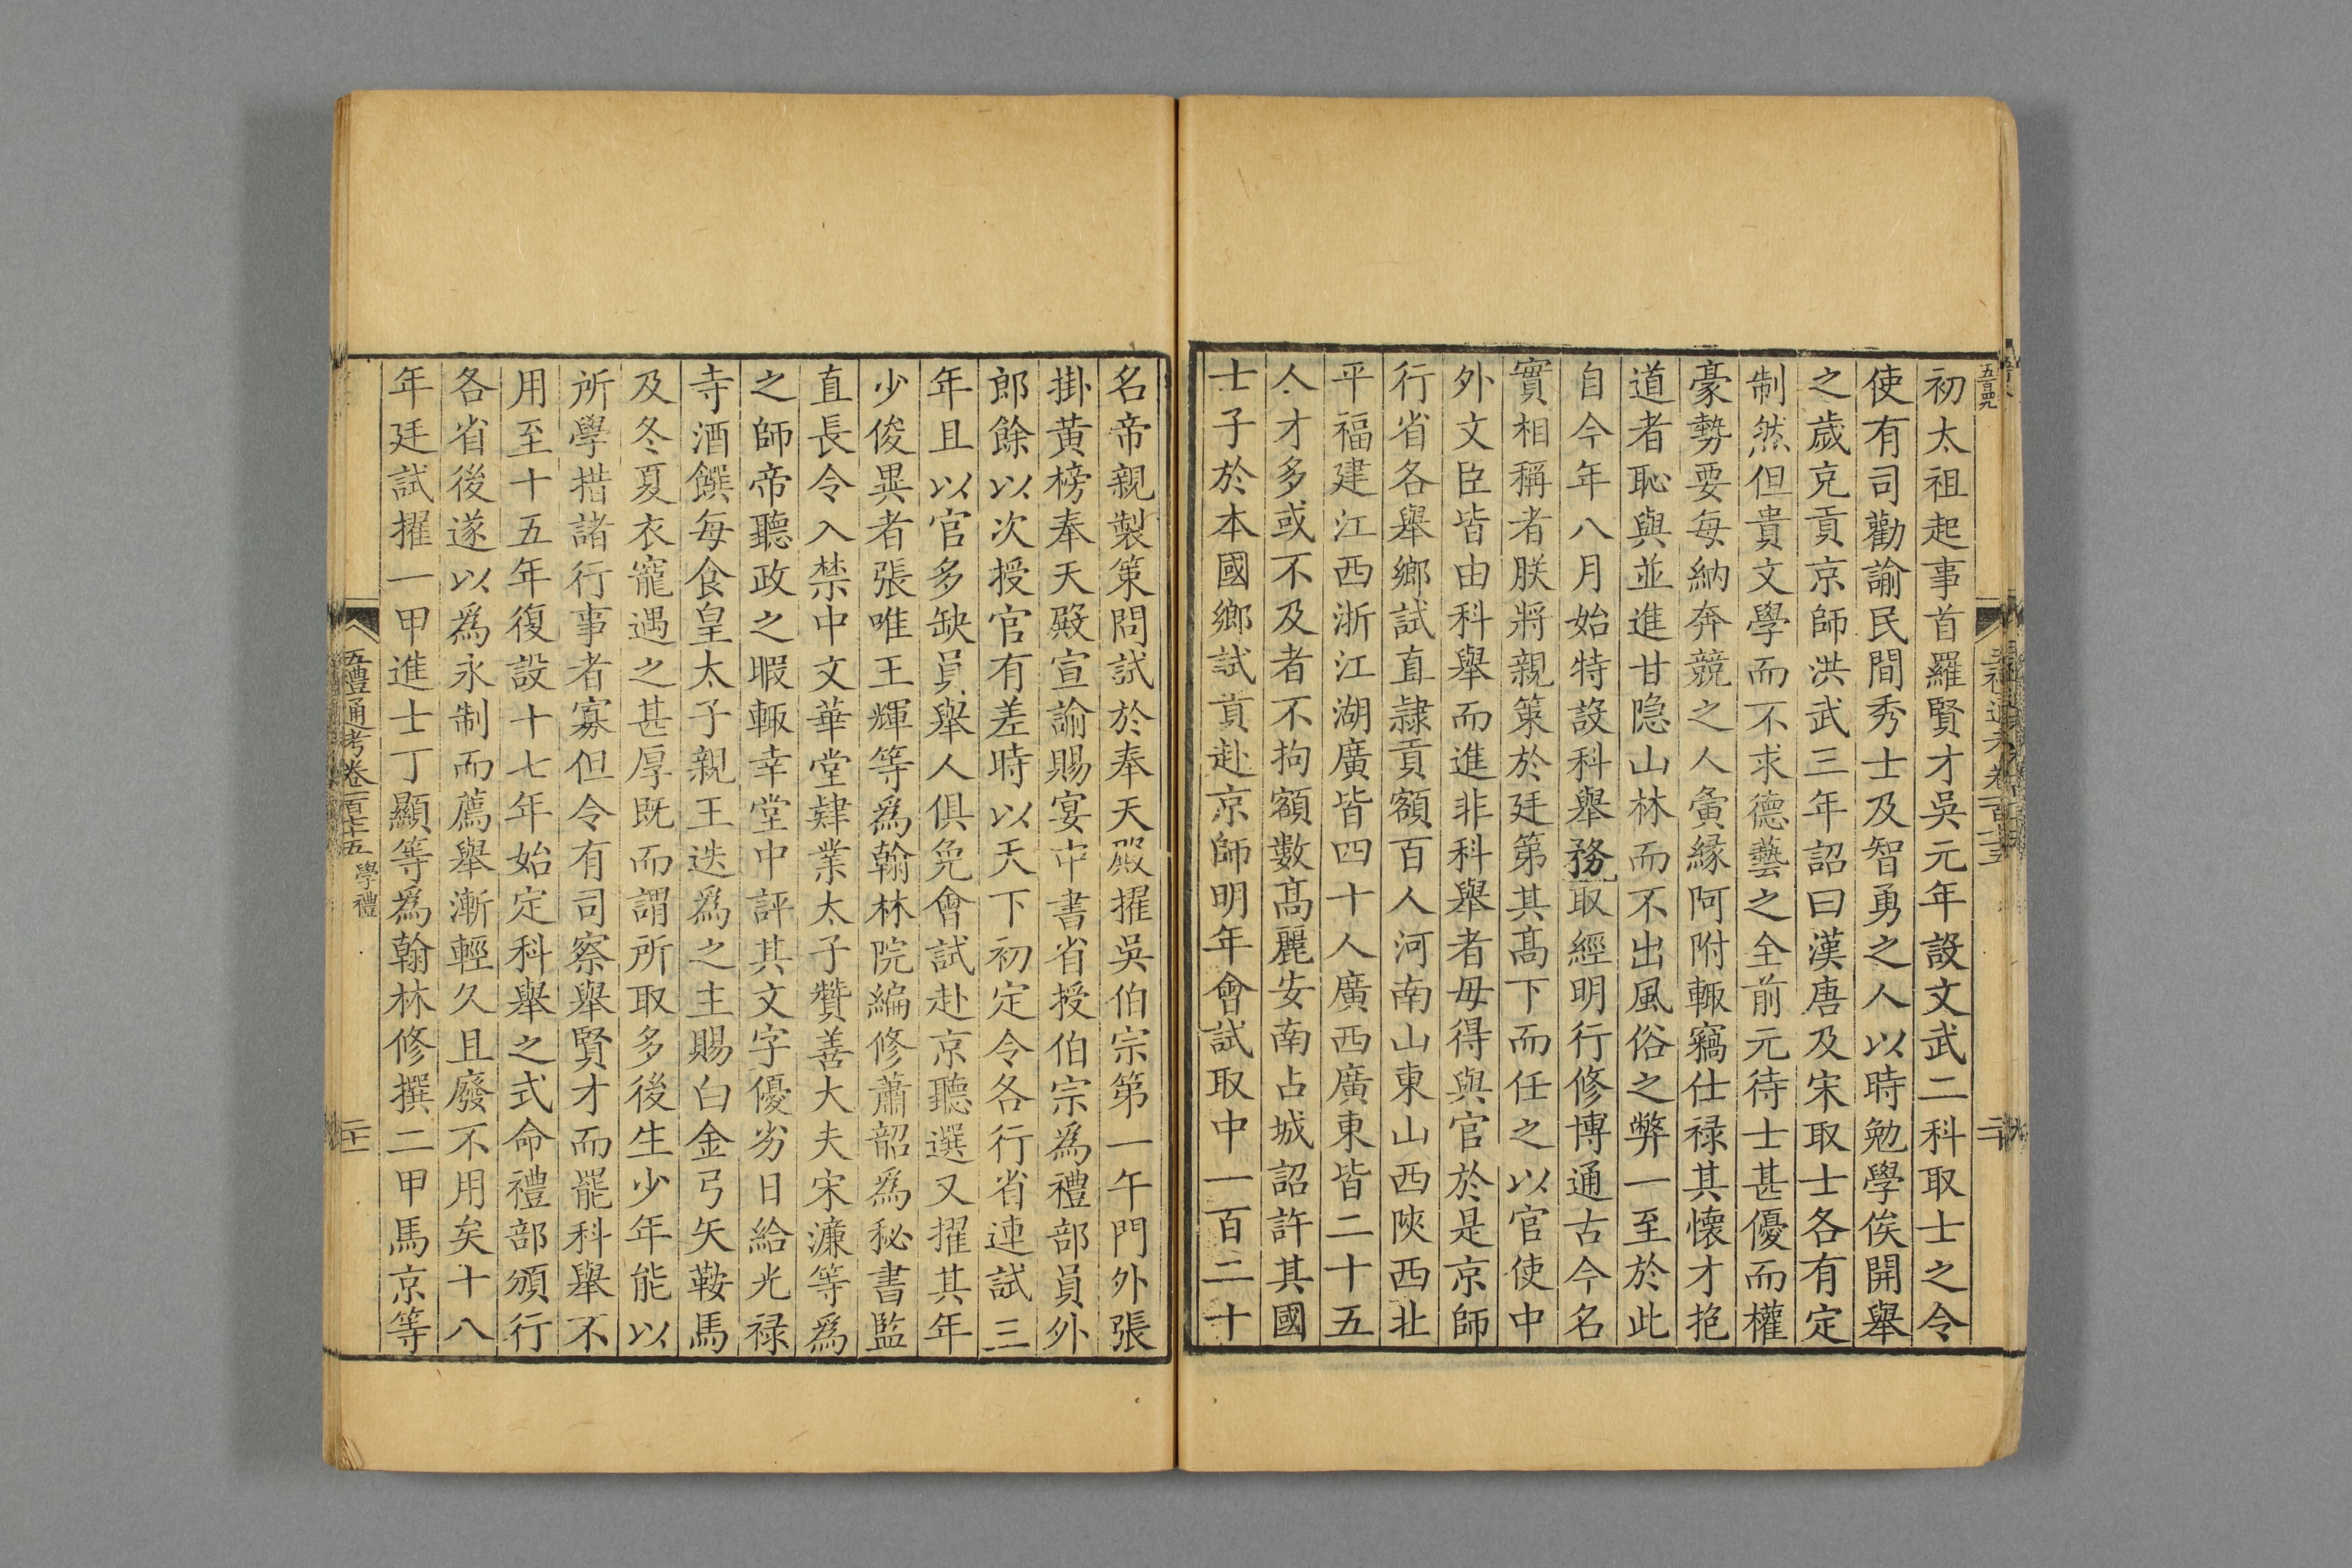 初太祖起事首羅賢才吳元年設文武二科取士之令
使有司勸諭民間秀士及智勇之人以時勉學俟開舉
之歲充貢京師洪武三年詔曰漢唐及宋取士各有定
制然但貴文學而不求德藝之全前元待士甚優而權
豪勢要每納奔競之人夤緣阿附輒竊仕祿其懷才抱
道者恥與並進甘隐山林而不出風俗之弊一至於此
自今年八月始特設科舉務取經明行修博通古今名
實相稱者朕將親策於廷第其髙下而任之以官使中
外文臣皆由科舉而進非科舉者毋得與官於是京師
行省各舉鄉試直隷貢額百人河南山東山西陝西北
平福建江西浙江湖廣皆四十人廣西廣東皆二十五
人才多或不及者不拘額數髙麗安南占城詔許其國
士子於本國鄉試貢赴京師明年會試取中一百二十
名帝親製策問試於奉天殿擢吳伯宗第一午門外張
掛黄榜奉天殿宣諭賜宴中書省授伯宗爲禮部員外
郎餘以次授官有差時以天下初定令各行省連試三
年且以官多缺員舉人俱免會試赴京聽選又擢其年
少俊異者張唯王輝等爲翰林院編修蕭韶爲秘書監
直長令入禁中文華堂肄業太子贊善大夫宋濂等爲
之師帝聽政之暇輒幸堂中評其文字優劣日給光禄
寺酒饌每食皇太子親王迭爲之主賜白金弓矢鞍馬
及冬夏衣寵遇之甚厚既而謂所取多後生少年能以
所學措諸行事者寡但令有司察舉賢才而罷科舉不
用至十五年復設十七年始定科舉之式命禮部頒行
各省後遂以爲永制而薦舉漸輕久且廢不用矣十八
年廷試擢一甲進士丁顯等爲翰林修撰二甲馬京等
五禮通考卷一百七十五 學禮 二十一